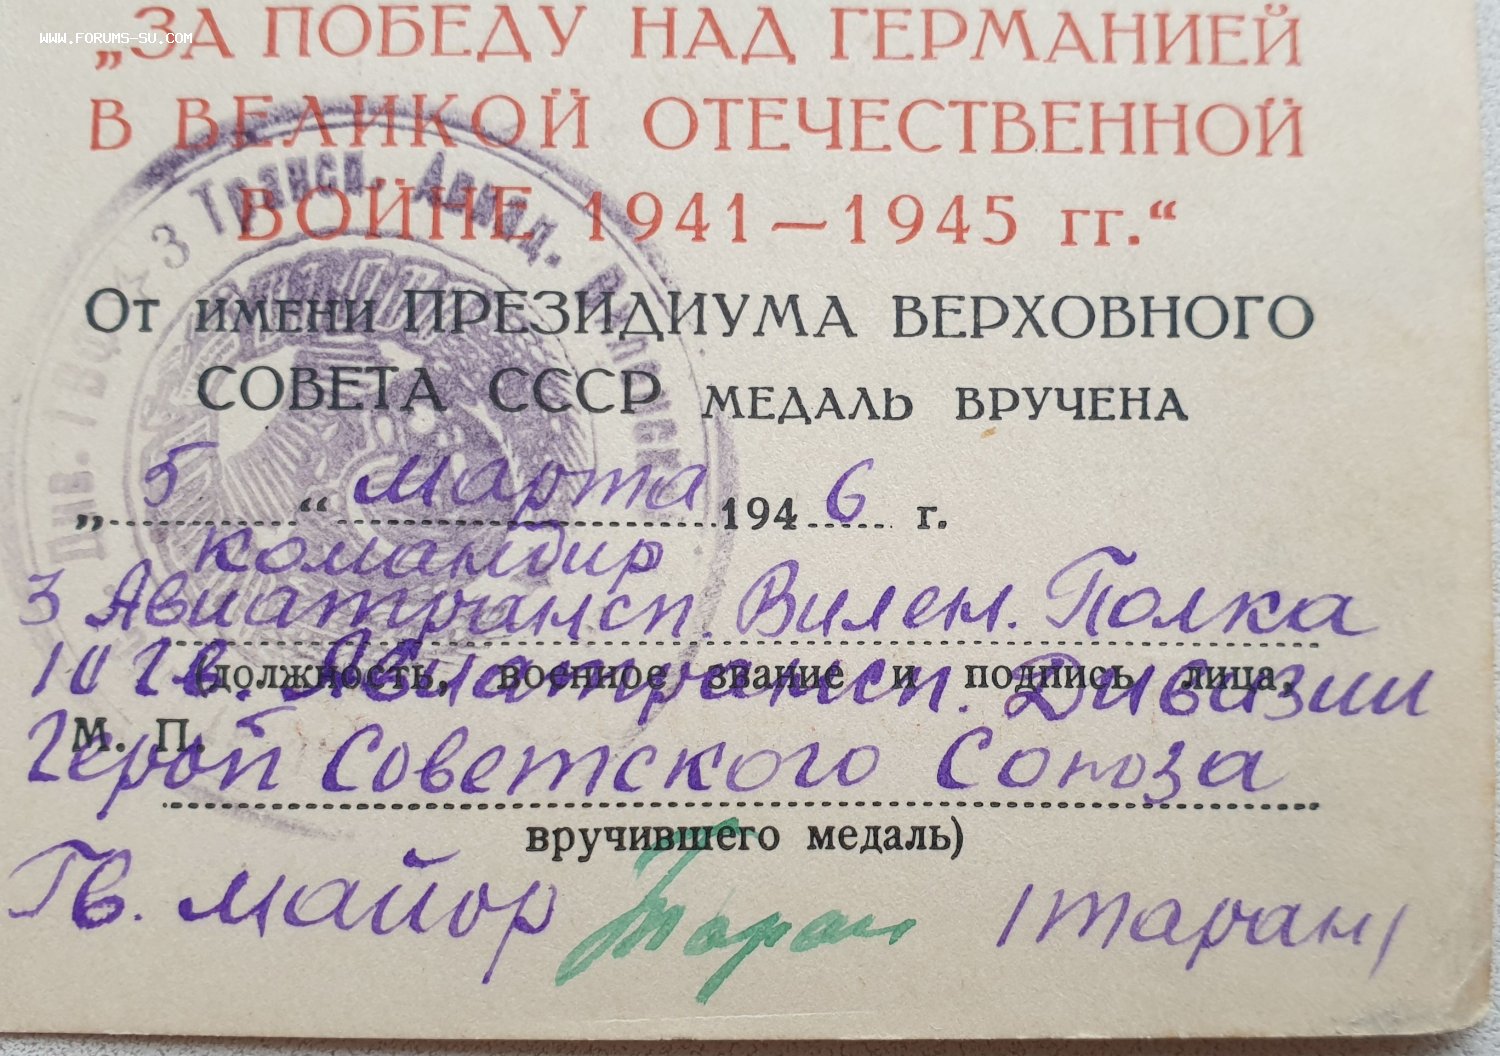 WWW.FORUMS-SU.COM
„ЗА ПОБЕДУ НАД ГЕРМАНИЕЙ
В ВЕЛИКОЙ ОТЕЧЕСТВЕННОЙ
ВОЙНЕ 1941—1945 гг.“
3 Трансп. Авиац.
От имени ПРЕЗИДИУМА ВЕРХОВНОГО
СОВЕТА СССР МЕДАЛЬ ВРУЧЕНА
„5“ марта 1946 г.
командир
3 Авиатрансп. Вилен. Полка
10 Гв. Авиатрансп. Дивизии
(должность, военное звание и подпись лица,
М. П.
Герой Советского Союза
вручившего медаль)
Гв. майор Таран /Таран/